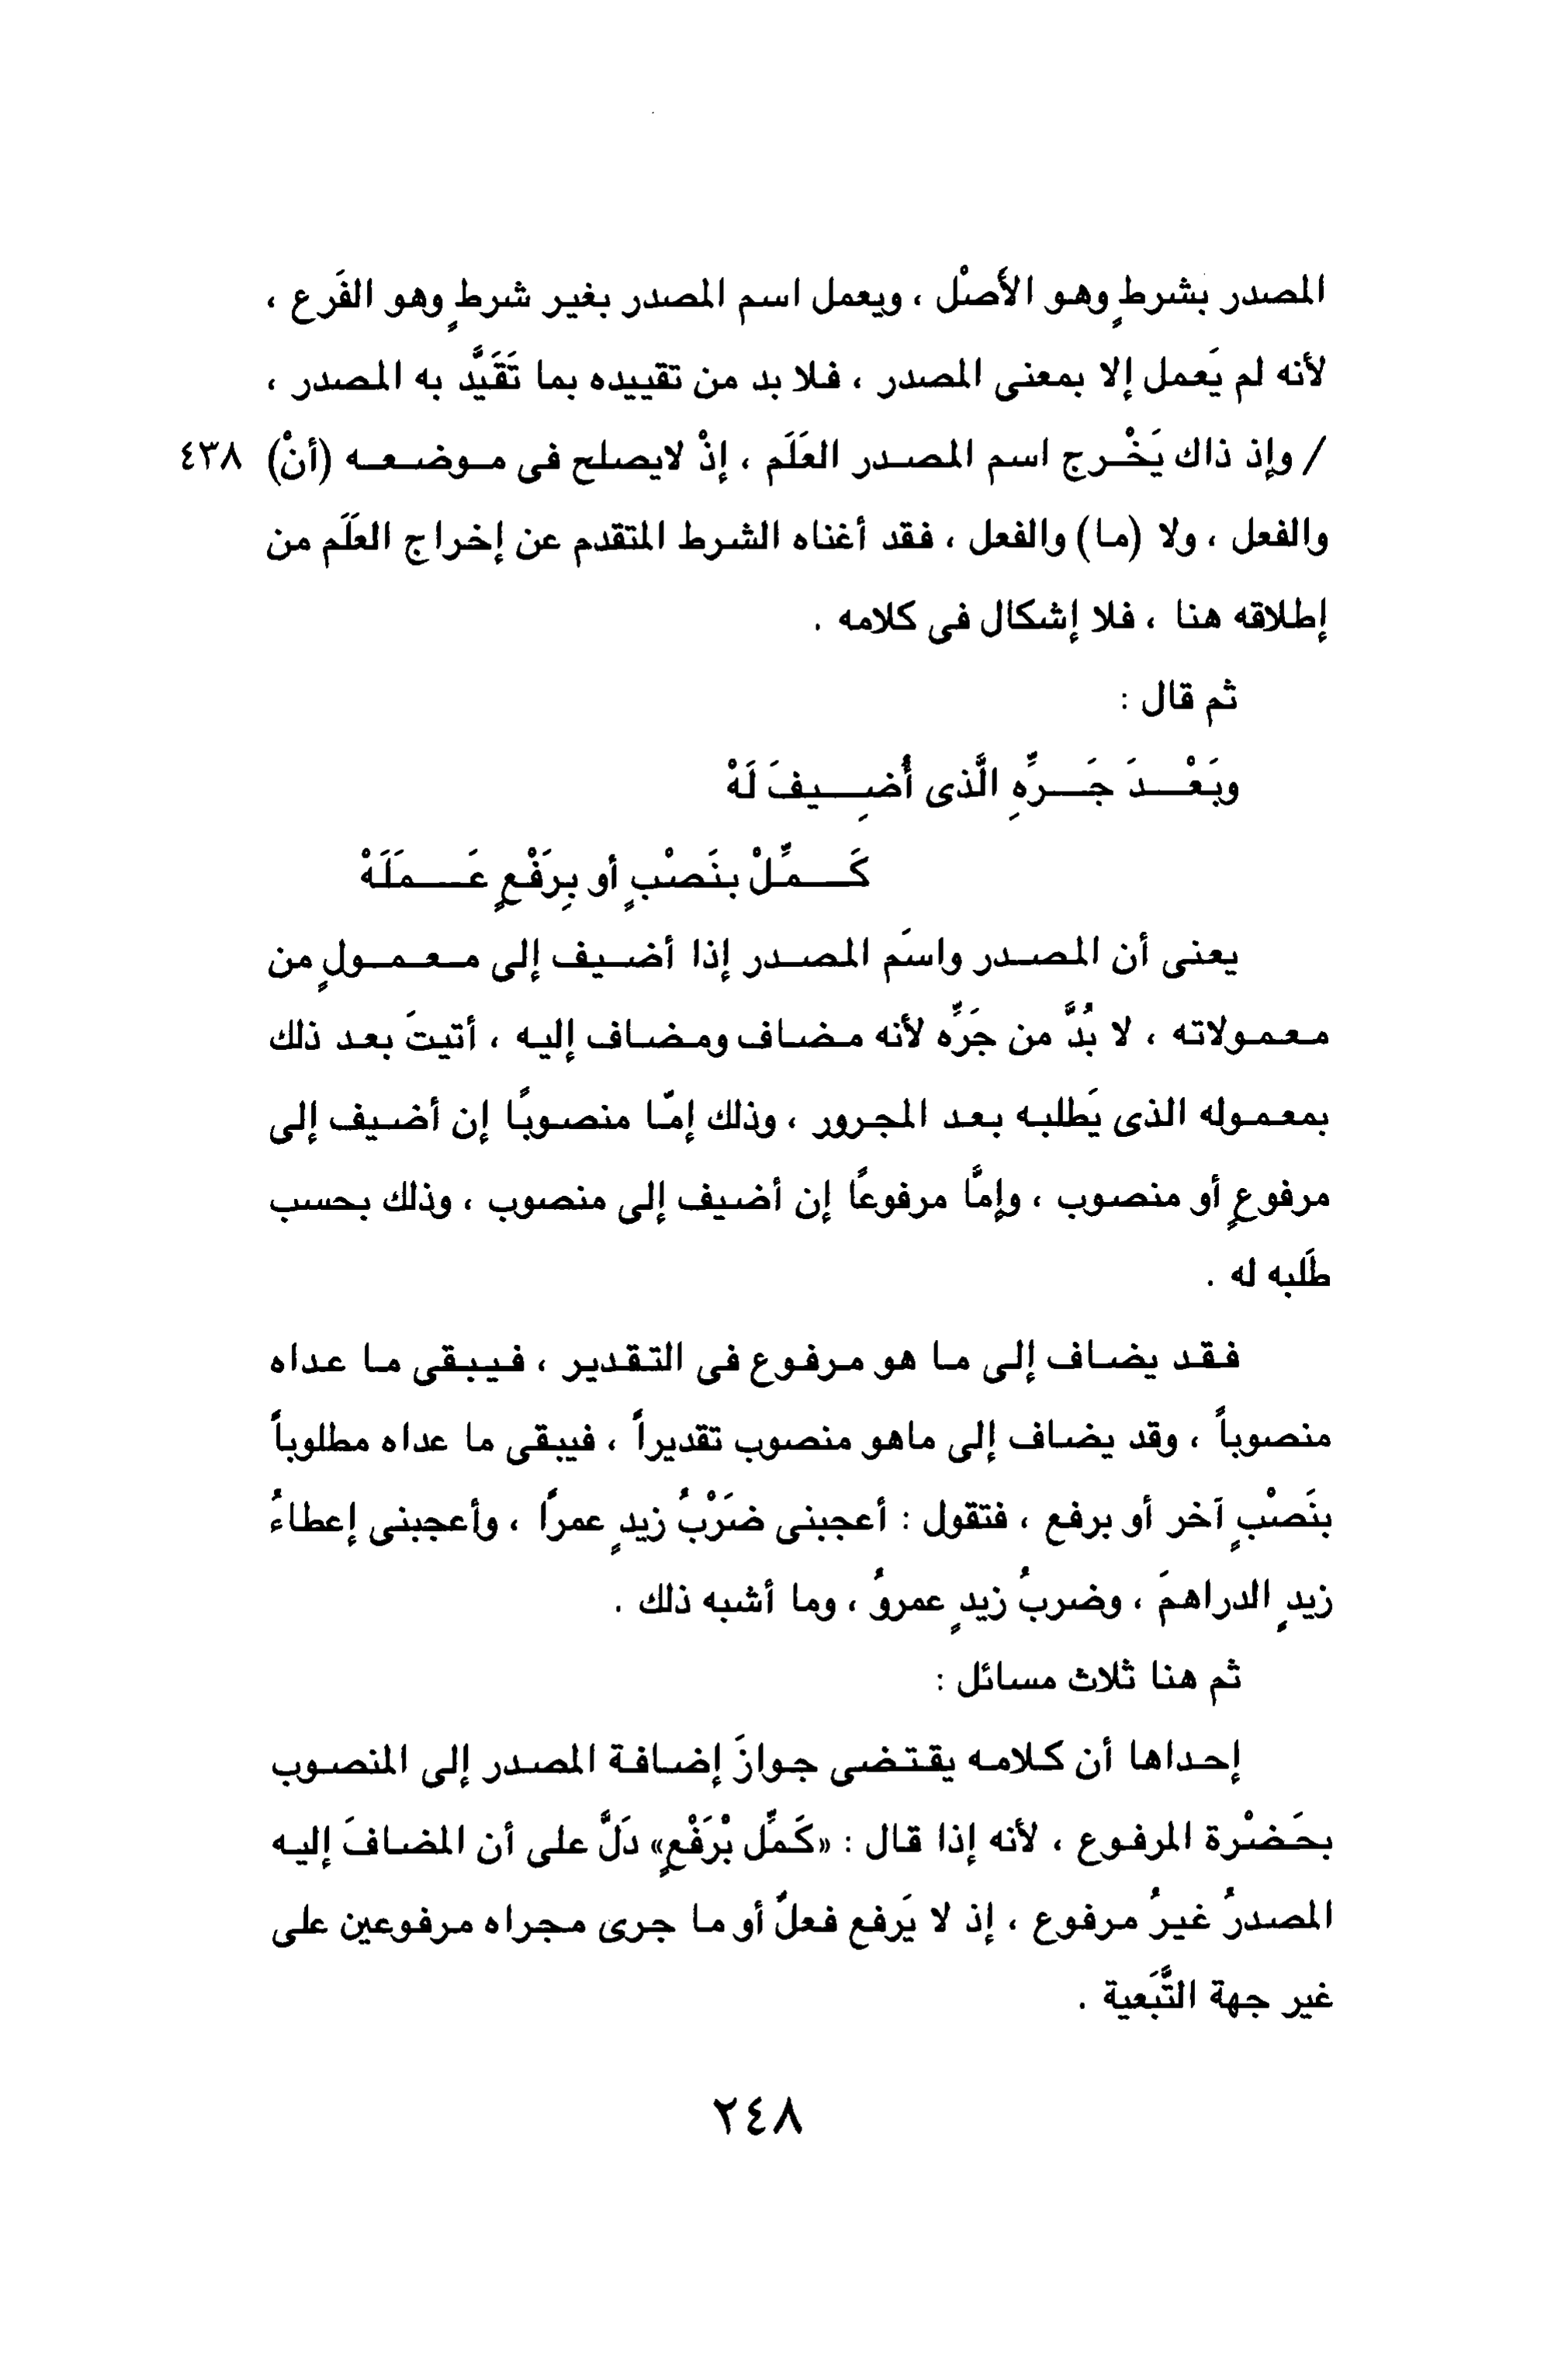 المصدر بشرطٍ وهو الأصْل ، ويعمل اسم المصدر بغير شرطٍ وهو الفَرع ،
لأنه لم يَعمل إلا بمعنى المصدر ، فلا بد من تقييده بما تَقَيَّد به المصدر ،
/ وإذ ذاك يَخْرج اسم المصدر العَلَم ، إذْ لايصلح فى موضعه (أنْ) ٤٣٨
والفعل ، ولا (ما) والفعل ، فقد أغناه الشرط المتقدم عن إخراج العَلَم من
إطلاقه هنا ، فلا إشكال فى كلامه .
ثم قال :
وبَعْدَ جَرِّهِ الَّذى أُضِيفَ لَهْ
كَمِّلْ بنَصْبٍ أو بِرَفْعٍ عَمَلَهْ
يعنى أن المصدر واسَم المصدر إذا أضيف إلى معمولٍ من
معمولاته ، لا بُدَّ من جَرِّه لأنه مضاف ومضاف إليه ، أتيتَ بعد ذلك
بمعموله الذى يَطلبه بعد المجرور ، وذلك إمّا منصوبًا إن أضيف إلى
مرفوعٍ أو منصوب ، وإمَّا مرفوعًا إن أضيف إلى منصوب ، وذلك بحسب
طَلَبه له .
فقد يضاف إلى ما هو مرفوع فى التقدير ، فيبقى ما عداه
منصوباً ، وقد يضاف إلى ماهو منصوب تقديراً ، فيبقى ما عداه مطلوباً
بنَصْبٍ آخر أو برفع ، فتقول : أعجبنى ضَرْبُ زيدٍ عمرًا ، وأعجبنى إعطاءُ
زيدٍ الدراهمَ ، وضربُ زيدٍ عمروُ ، وما أشبه ذلك .
ثم هنا ثلاث مسائل :
إحداها أن كلامه يقتضى جوازَ إضافة المصدر إلى المنصوب
بحَضْرة المرفوع ، لأنه إذا قال : «كَمِّل بْرَفْعٍ» دَلَّ على أن المضافَ إليه
المصدرُ غيرُ مرفوع ، إذ لا يَرفع فعلٌ أو ما جرى مجراه مرفوعين على
غير جهة التَّبَعية .
٢٤٨